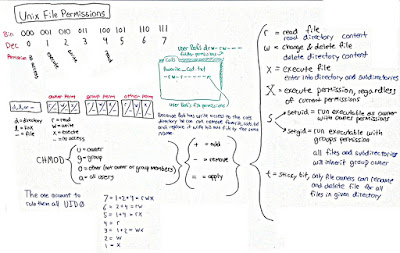 Unix File Permissions
Bin 000 001 010 011 100 101 110 111
Dec 0 1 2 3 4 5 6 7
no access
execute
write
read
owner perm group perm other perm
d, l, or -
d = directory
l = link
- = file
r = read
w = write
x = execute
- = no access
User Bob's drw-r--
folder permissions
Cats
favorite_cat.txt
-rw-r--r--
User Bob's file permissions
Because Bob has write access to the cats
directory he can not
and replace it with
name
CHMOD
u = owner
g = group
o = other (not owner or group members)
a = all users
+ = add
- = remove
= = apply
The one account to
rule them all UID 0
7 = 1+2+4 = rwx
6 = 2+4 = rw
5 = 1+4 = rx
4 = r
3 = 1+2 = wx
2 = w
1 = x
r = read file
read directory content
w = change & delete file
delete directory content
x = execute file
enter into directory and subdirectories
X = execute permission, regardless
of current permissions
s
setuid = run executable as owner
with owner permissions
setgid = run executable with
groups permission
all files and subdirectories
will inherit group owner
t = sticky bit, only file owners can rename
and delete file for all
files in given directory